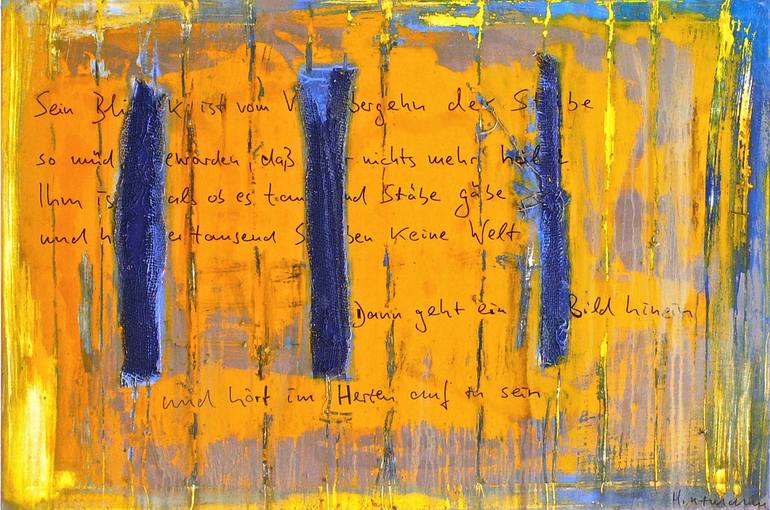 Sein Blick ist vom Vorübergehn der Stäbe
so müd geworden, daß er nichts mehr hält
Ihm ist als ob es tausend Stäbe gäbe
und hinter tausend Stäben keine Welt
Dann geht ein Bild hinein
und hört im Herzen auf zu sein